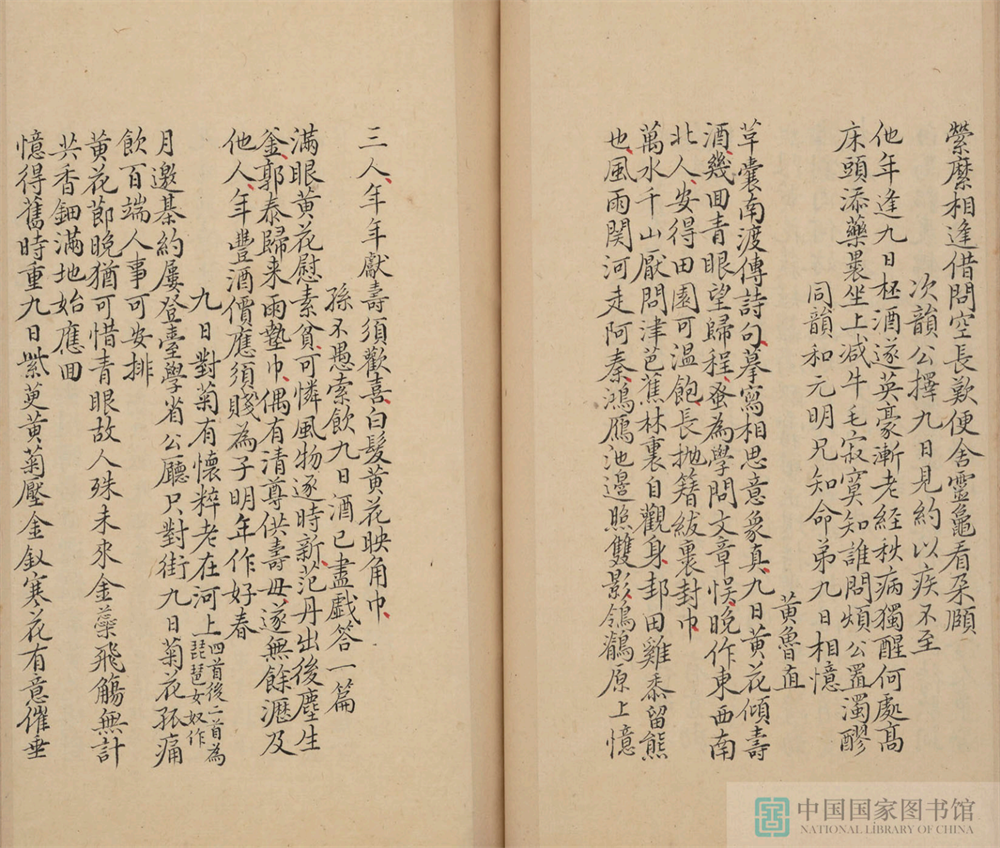 縈縻相逢借問空長歎便舍靈龜看朶頤
次韻公擇九日見約以疾不至
他年逢九日杯酒遂英豪漸老經秋病獨醒何處高
床頭添藥裹坐上減牛毛寂寞知誰問煩公置濁醪
同韻和元明兄知命弟九日相憶
黃魯直
草囊南渡傳詩句摹寫相思意象真九日黃花傾壽
酒幾回青眼望歸程蚤為學問文章悞晚作東西南
北人安得田園可溫飽長抛簪紱裹封巾
萬水千山厭問津芭蕉林裏自觀身邽田雞黍留熊
也風雨関河走阿秦鴻鴈池邊照雙影鶺鴒原上憶
三人年年獻壽須歡喜白髮黃花映角巾
孫不愚索飲九日酒已盡戲答一篇
滿眼黃花慰素貧可憐風物逐時新范丹出後塵生
釜郭泰歸来雨墊巾偶有清尊供壽母遂無餘瀝及
他人年豐酒價應須賤為子明年作好春
九日對菊有懷粹老在河上四首後二首為琵琶女奴作
月邊棊約屢登臺學省公廳只對街九日菊花孤痛
飲百端人事可安排
黃花節晚猶可惜青眼故人殊未來金蘂飛觴無計
共香鈿滿地始應回
憶得舊時重九日紫萸黃菊壓金釵寒花有意催垂
中国国家图书馆
NATIONAL LIBRARY OF CHINA